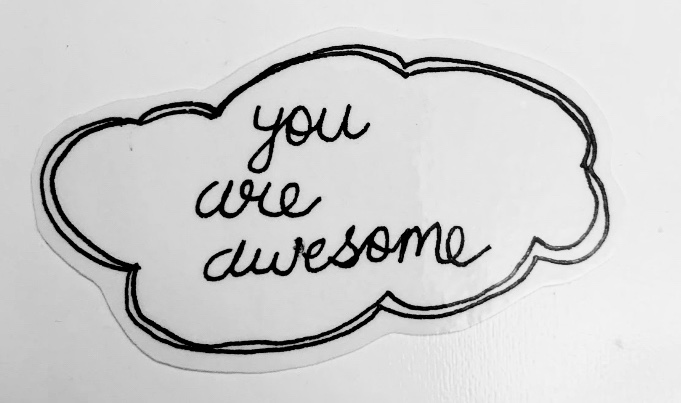 you
are
awesome